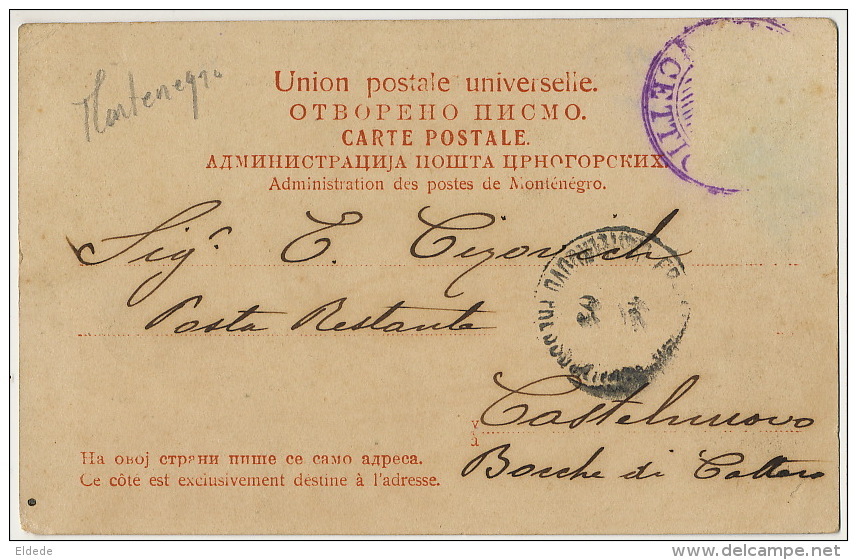 Montenegro
Union postale universelle.
ОТВОРЕНО ПИСМО.
CARTE POSTALE.
АДМИНИСТРАЦИЈА ПОШТА ЦРНОГОРСКИХ
Administration des postes de Monténégro.
CETT
Sigr. E. Cizovich
Posta Restante
Castelnuovo
у
à
Bocche di Cattaro
На овој страни пише се само адреса.
Ce côté est exclusivement destine à l'adresse.
Eldede
delcampe.net